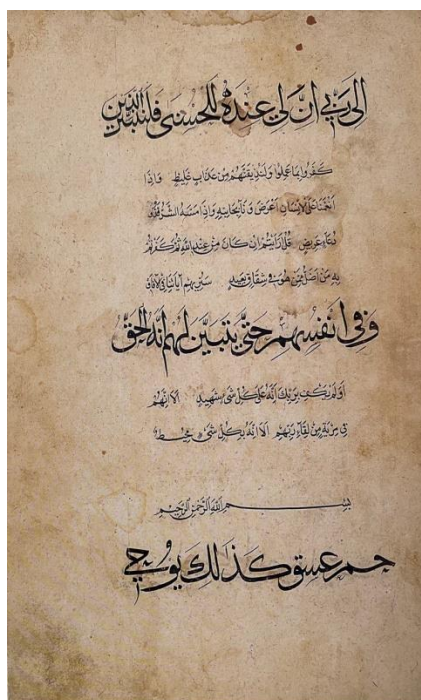 الى ربي ان لي عنده للحسنى فلننبئن الذين
كفروا بما عملوا ولنذيقنهم من عذاب غليظ واذا
انعمنا على الانسان اعرض ونا بجانبه واذا مسه الشر فذو
دعاء عريض قل ارايتم ان كان من عند الله ثم كفرتم
به من اضل ممن هو في شقاق بعيد سنريهم آياتنا في الآفاق
وفي انفسهم حتى يتبين لهم انه الحق
اولم يكف بربك انه على كل شئ شهيد الا انهم
في مرية من لقاء ربهم الا انه بكل شئ محيط
بسم الله الرحمن الرحيم
حم عسق كذلك يوحي